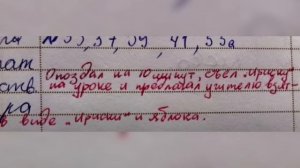 N 35, 37, 39, 41, 53а
Опоздал на 10 минут, съел „Ириску"
на уроке и предлагал учителю взят-
в виде „Ириски" и яблока.